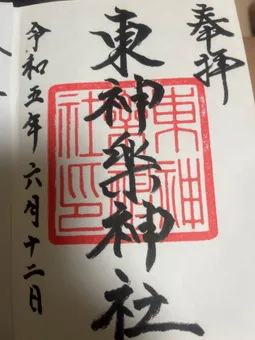 奉拝
東神楽神社
東神楽神社印
令和五年六月十二日